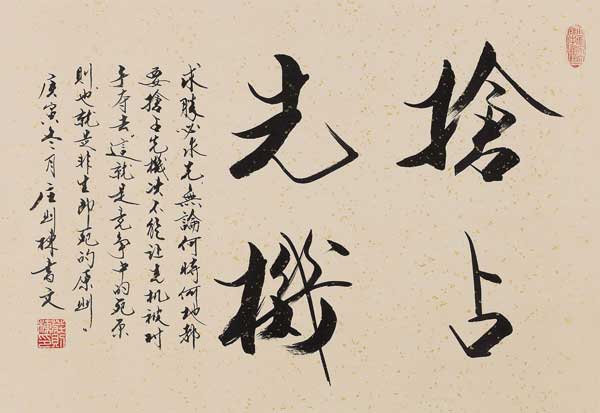 搶占
先機
求勝必求先無論何時何地都
要搶占先機决不能让先机被对
手夺去這就是竞争中的死原
則也就是非生即死的原则
庚寅冬月庄则棟書文